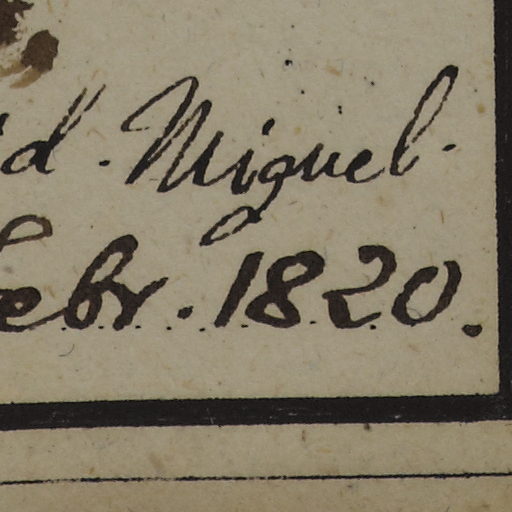 d. Miguel.
Febr. 1820.